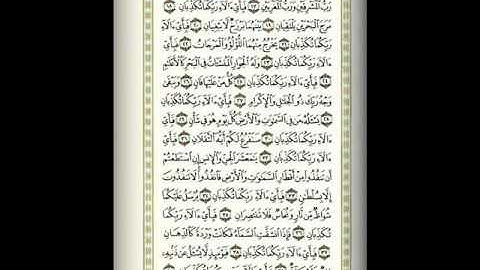 رَبُّ ٱلْمَشْرِقَيْنِ وَرَبُّ ٱلْمَغْرِبَيْنِ ١٧ فَبِأَيِّ ءَالَآءِ رَبِّكُمَا تُكَذِّبَانِ ١٨
مَرَجَ ٱلْبَحْرَيْنِ يَلْتَقِيَانِ ١٩ بَيْنَهُمَا بَرْزَخٌ لَّا يَبْغِيَانِ ٢٠ فَبِأَيِّ ءَالَآءِ
رَبِّكُمَا تُكَذِّبَانِ ٢١ يَخْرُجُ مِنْهُمَا ٱللُّؤْلُؤُ وَٱلْمَرْجَانُ ٢٢ فَبِأَيِّ
ءَالَآءِ رَبِّكُمَا تُكَذِّبَانِ ٢٣ وَلَهُ ٱلْجَوَارِ ٱلْمُنشَـَٔاتُ فِي ٱلْبَحْرِ كَٱلْأَعْلَٰمِ
٢٤ فَبِأَيِّ ءَالَآءِ رَبِّكُمَا تُكَذِّبَانِ ٢٥ كُلُّ مَنْ عَلَيْهَا فَانٍ ٢٦ وَيَبْقَىٰ
وَجْهُ رَبِّكَ ذُو ٱلْجَلَٰلِ وَٱلْإِكْرَامِ ٢٧ فَبِأَيِّ ءَالَآءِ رَبِّكُمَا تُكَذِّبَانِ
٢٨ يَسْـَٔلُهُۥ مَن فِي ٱلسَّمَٰوَٰتِ وَٱلْأَرْضِ كُلَّ يَوْمٍ هُوَ فِي شَأْنٍ ٢٩ فَبِأَيِّ
ءَالَآءِ رَبِّكُمَا تُكَذِّبَانِ ٣٠ سَنَفْرُغُ لَكُمْ أَيُّهَ ٱلثَّقَلَانِ ٣١ فَبِأَيِّ
ءَالَآءِ رَبِّكُمَا تُكَذِّبَانِ ٣٢ يَٰمَعْشَرَ ٱلْجِنِّ وَٱلْإِنسِ إِنِ ٱسْتَطَعْتُمْ
أَن تَنفُذُوا۟ مِنْ أَقْطَارِ ٱلسَّمَٰوَٰتِ وَٱلْأَرْضِ فَٱنفُذُوا۟ لَا تَنفُذُونَ
إِلَّا بِسُلْطَٰنٍ ٣٣ فَبِأَيِّ ءَالَآءِ رَبِّكُمَا تُكَذِّبَانِ ٣٤ يُرْسَلُ عَلَيْكُمَا
شُوَاظٌ مِّن نَّارٍ وَنُحَاسٌ فَلَا تَنتَصِرَانِ ٣٥ فَبِأَيِّ ءَالَآءِ رَبِّكُمَا
تُكَذِّبَانِ ٣٦ فَإِذَا ٱنشَقَّتِ ٱلسَّمَآءُ فَكَانَتْ وَرْدَةً كَٱلدِّهَانِ
٣٧ فَبِأَيِّ ءَالَآءِ رَبِّكُمَا تُكَذِّبَانِ ٣٨ فَيَوْمَئِذٍ لَّا يُسْـَٔلُ عَن ذَنۢبِهِۦٓ